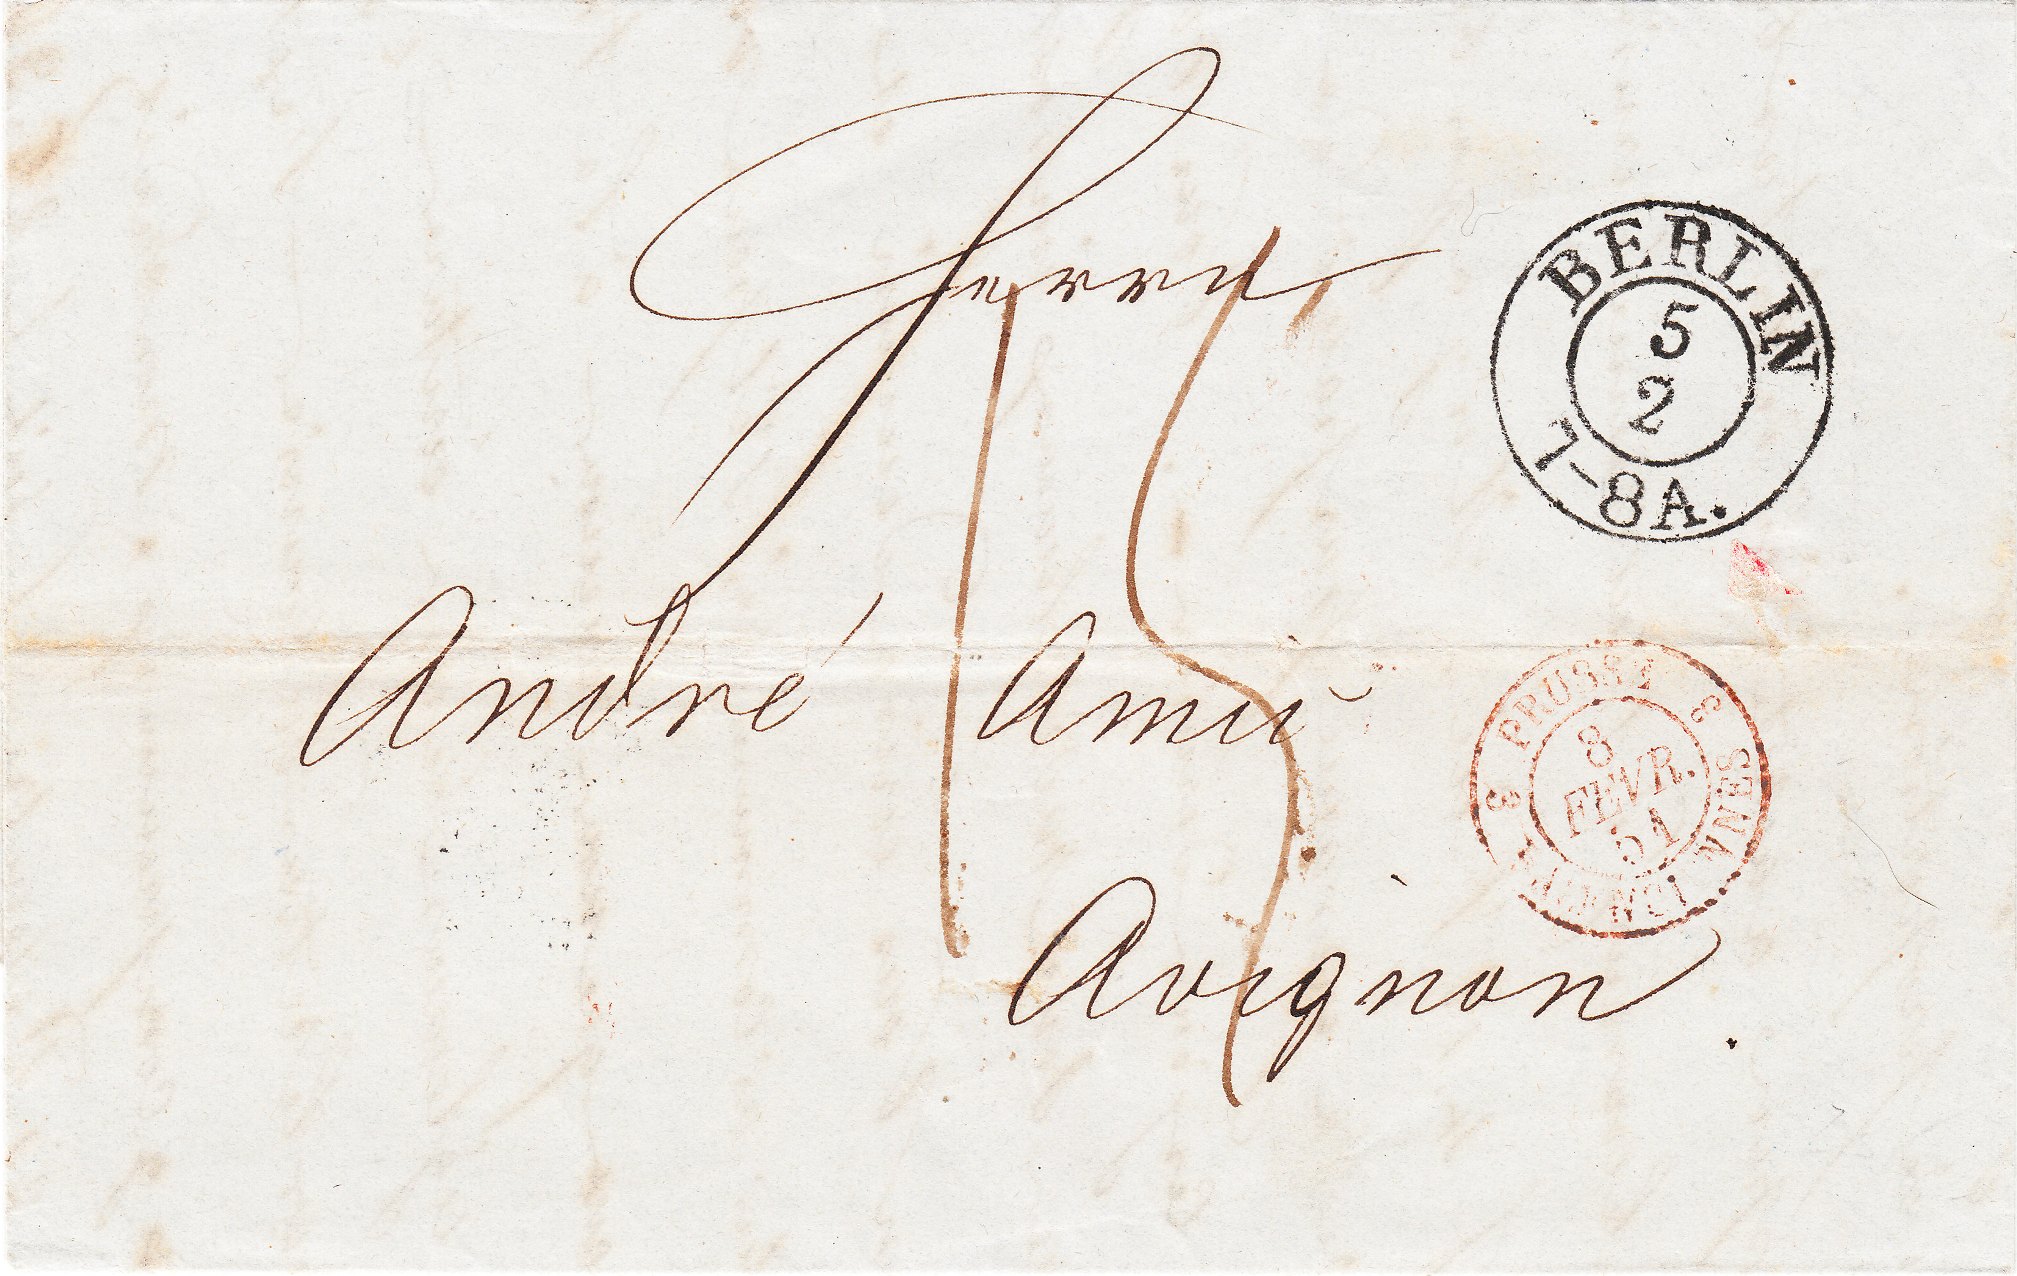 Herrn
15
André Amic
Avignon
BERLIN
5
2
7-8A.
3 PRUSSE 3
8
FEVR.
51
VALENCIENNES